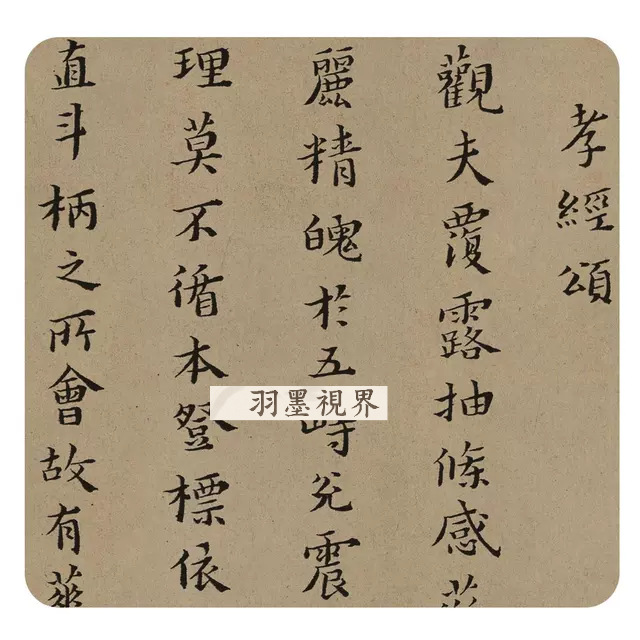 孝經頌
觀夫覆露抽條感
麗精魄於五時兊震
理莫不循本發標依
直斗柄之所會故有華
羽墨視界